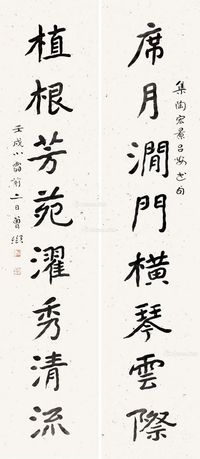 席月澗門橫琴雲際
集陶宏景呂安也句
植根芳苑濯秀清流
壬戌小雪前二日曾熙